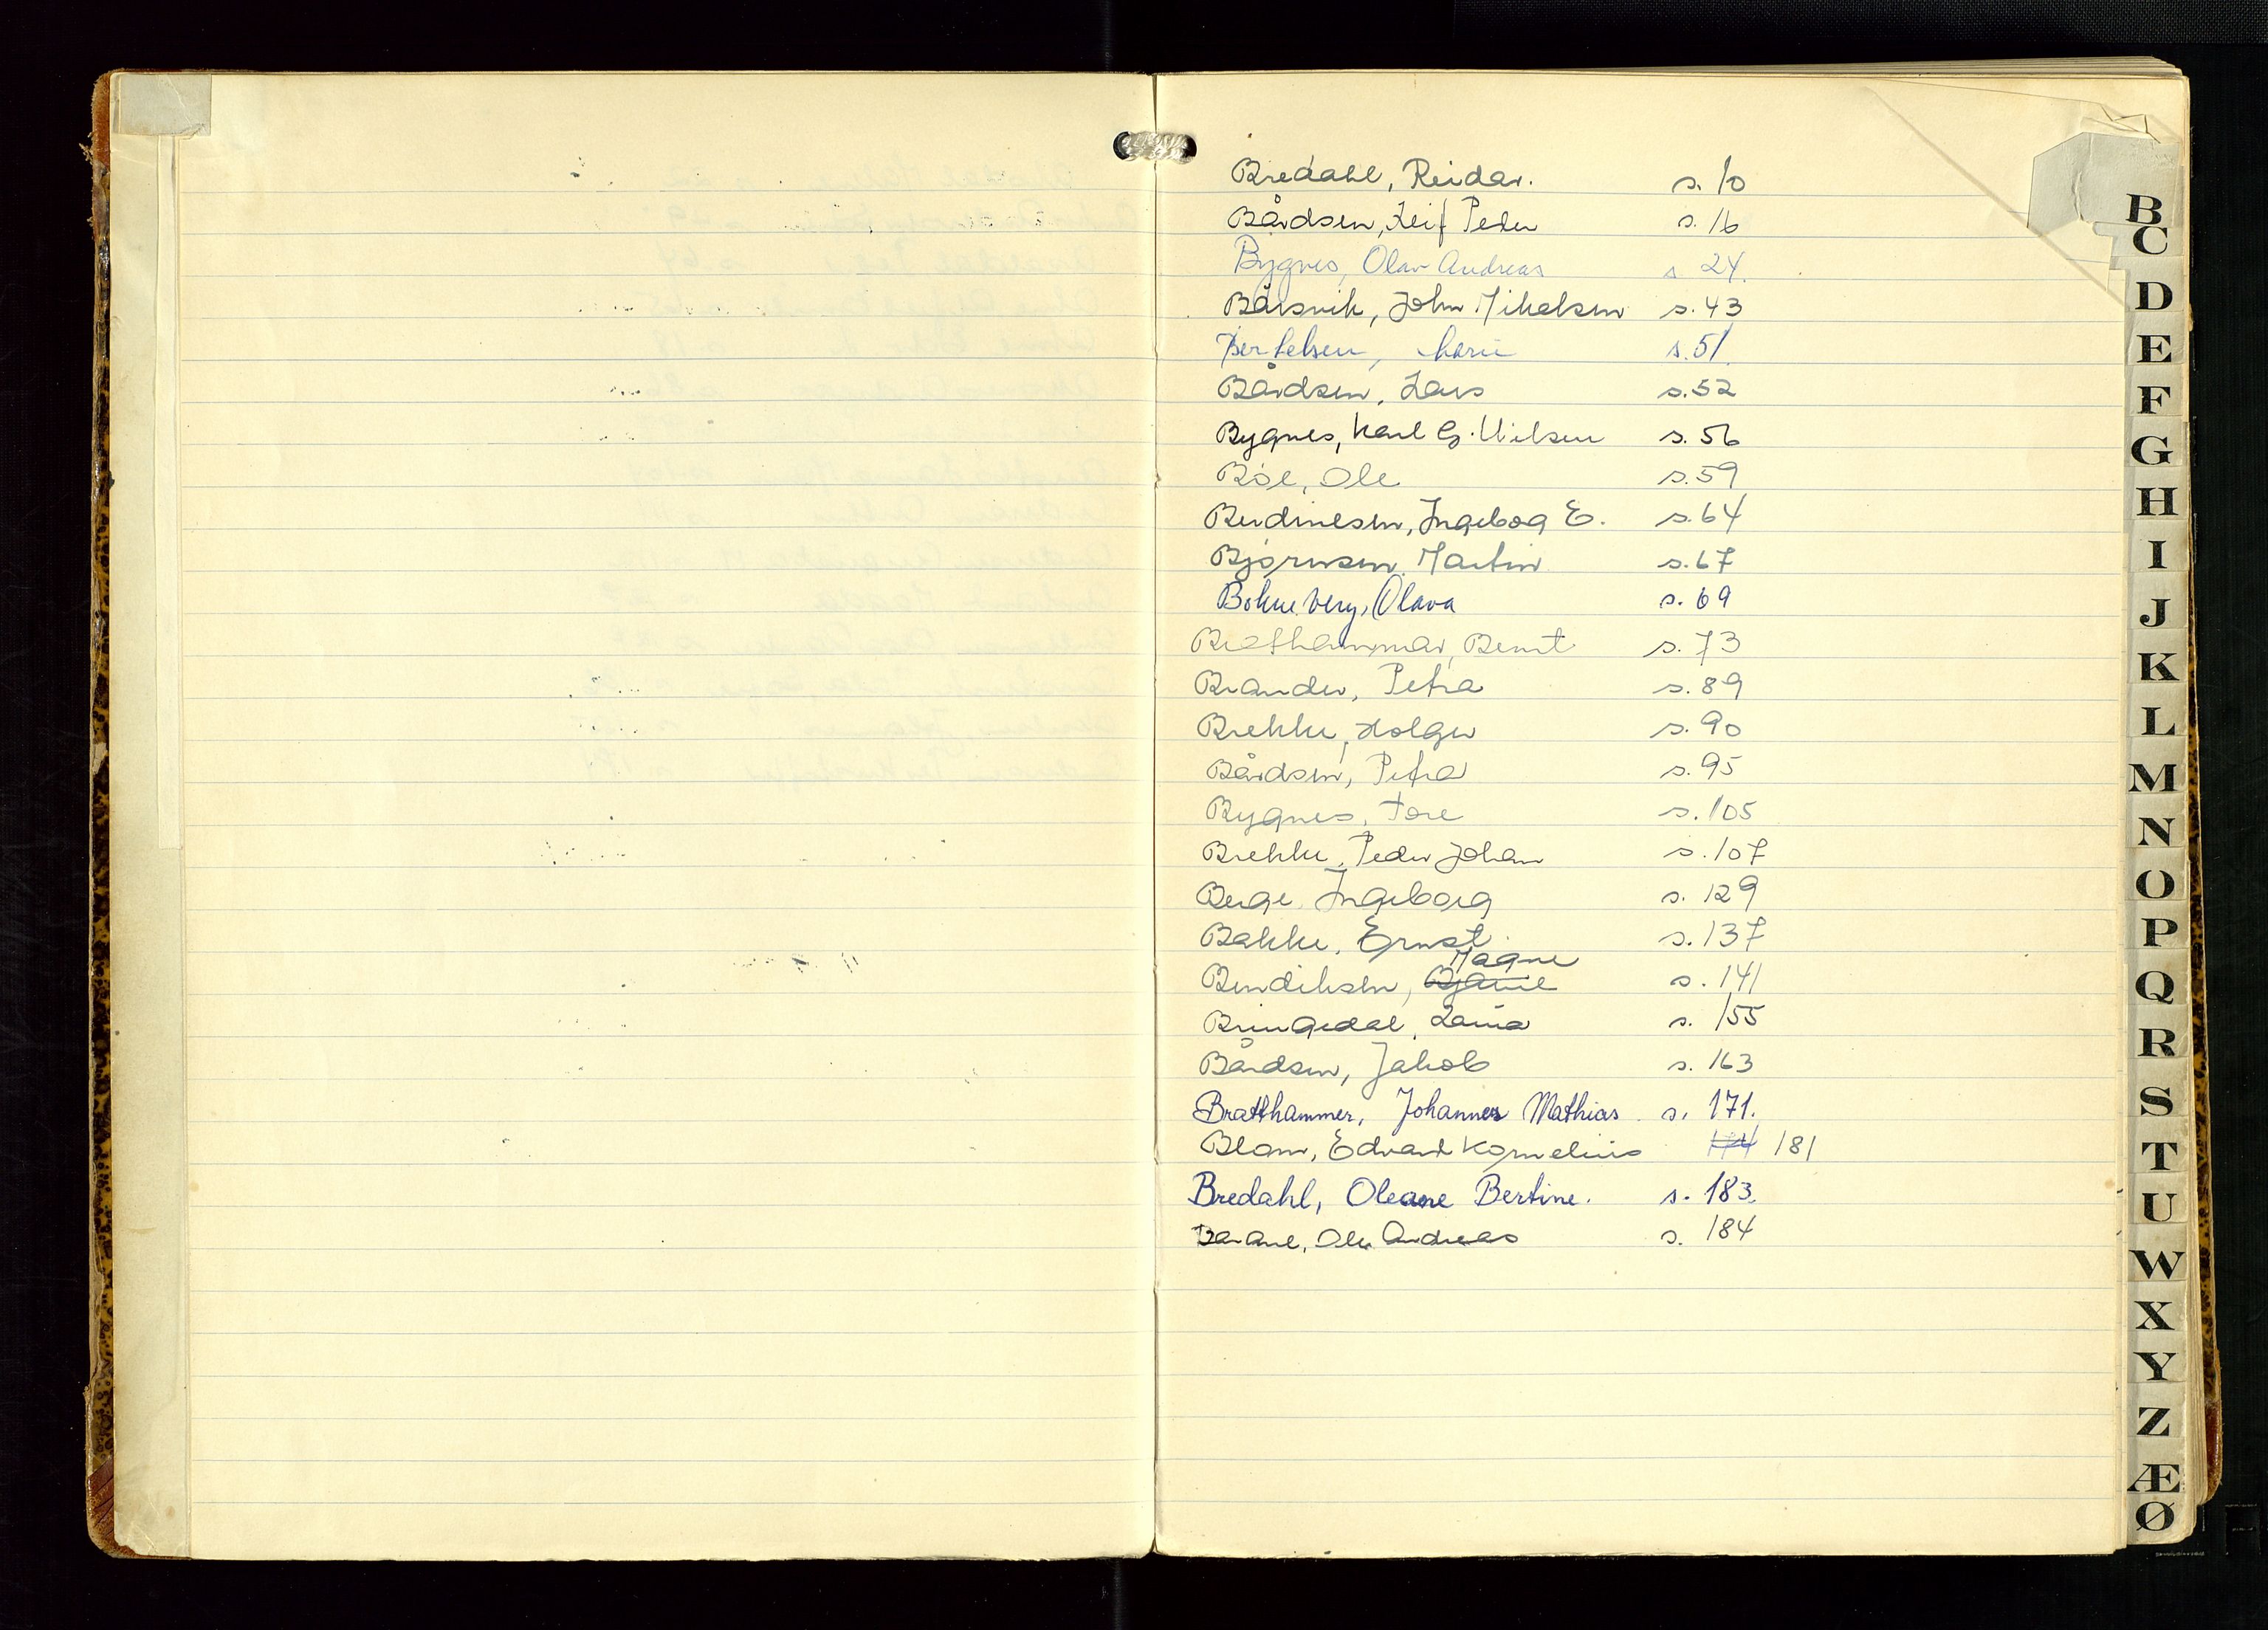 Bredahl, Reidar. s. 10
Bårdsen, Leif Peder s. 16
Bygnes, Olav Andreas s 24.
Bårsvik, John Mikalsen s. 43
Bertelsen, Marie s. 51.
Bårdsen, Lars s. 52
Bygnes, Karl G. Nilsen s. 56
Bøe, Ole s. 59
Berdinesen, Ingebog E. s. 64
Bjørnsen, Martin s. 67
Olava s. 69
Bratthammar, Bernt s. 73
Brander, Petra s. 89
Brekke, Holger s. 90
Bårdsen, Petra s. 95
Bygnes, Tore s. 105
Brekke, Peder Johan s. 107
Berge, Ingeborg s. 129
Bakke, Ernst s. 137
Magne
Bendiksen, Bjarne s. 141
Bringedal, s. 155
Bårdsen, Jakob s. 163
Bratthammer, Johannes Mathias s. 171.
Blom, Edvard Kornelius 174 181
Bredahl, Oleane Bertine. s. 183.
Barane, Ole Andreas s. 184
B
C
D
E
F
G
H
I
J
K
L
M
N
O
P
Q
R
S
T
U
W
X
Y
Z
Æ
Ø